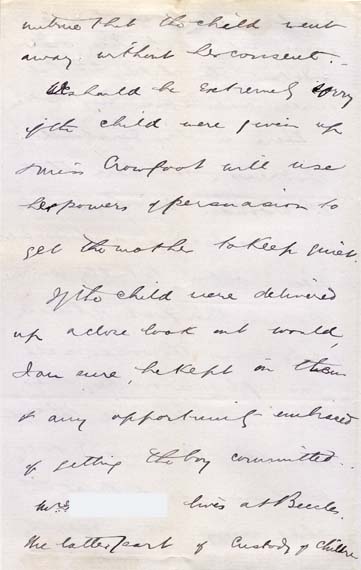 untrue that the child went
away without her consent. –
We should be extremely sorry
if the child were given up
& Miss Crowfoot will use
her powers of persuasion to
get the mother to keep quiet.
If the child were delivered
up a close look out would,
I am sure, be kept on them
& any opportunity embraced
of getting the boy committed..
Mrs lives at Beccles.
The latter part of Custody of Children